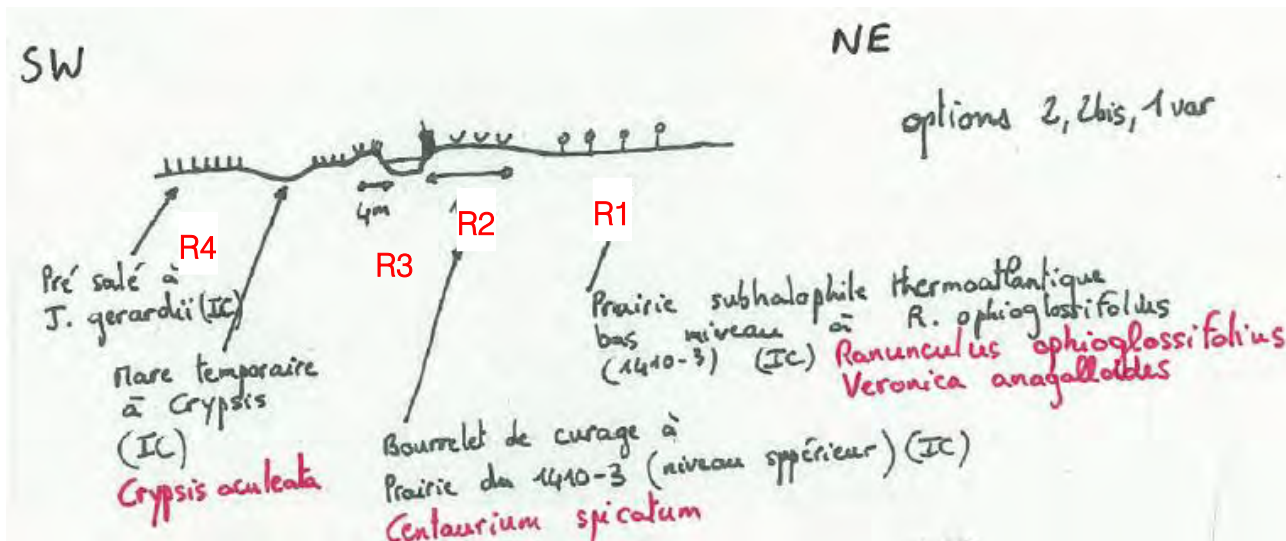 SW
NE
options 2, 2bis, 1 var
4m
R4
R3
R2
R1
Pré salé à
J. gerardii (IC)
Mare temporaire
à Crypsis
(IC)
Crypsis aculeata
Bourrelet de curage à
Prairie du 1410-3 (niveau sppérieur) (IC)
Centaurium spicatum
Prairie subhalophile thermoatlantique
bas niveau à R. ophioglossifolius
(1410-3) (IC) Ranunculus ophioglossifolius
Veronica anagalloides